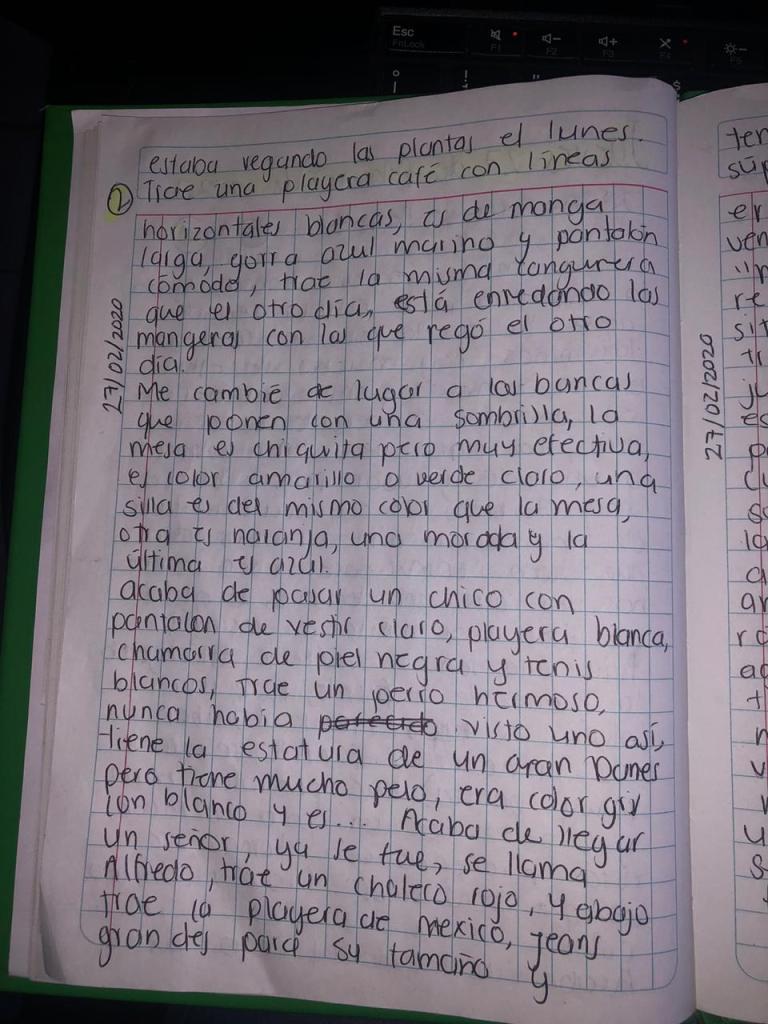 Esc
FnLock
F1
F2
F3
F4
F5
estaba regando las plantas el lunes.
2 Trae una playera café con líneas
horizontales blancas, es de manga
larga, gorra azul marino y pantalón
cómodo, trae la misma cangurera
que el otro día, está enredando las
mangeras con las que regó el otro
día.
27/02/2020
Me cambié de lugar a las bancas
que ponen con una sombrilla, la
mesa es chiquita pero muy efectiva,
es color amarillo o verde claro, una
silla es del mismo color que la mesa,
otra es naranja, una morada y la
última es azul.
acaba de pasar un chico con
pantalon de vestir claro, playera blanca,
chamarra de piel negra y tenis
blancos, trae un perro hermoso,
nunca había visto uno así,
tiene la estatura de un Gran Danes
pero tiene mucho pelo, era color gris
con blanco y es... Acaba de llegar
un señor, ya se fue, se llama
Alfredo, trae un chaleco rojo, y abajo
trae la playera de mexico, jeans
grandes para su tamaño y
27/02/2020